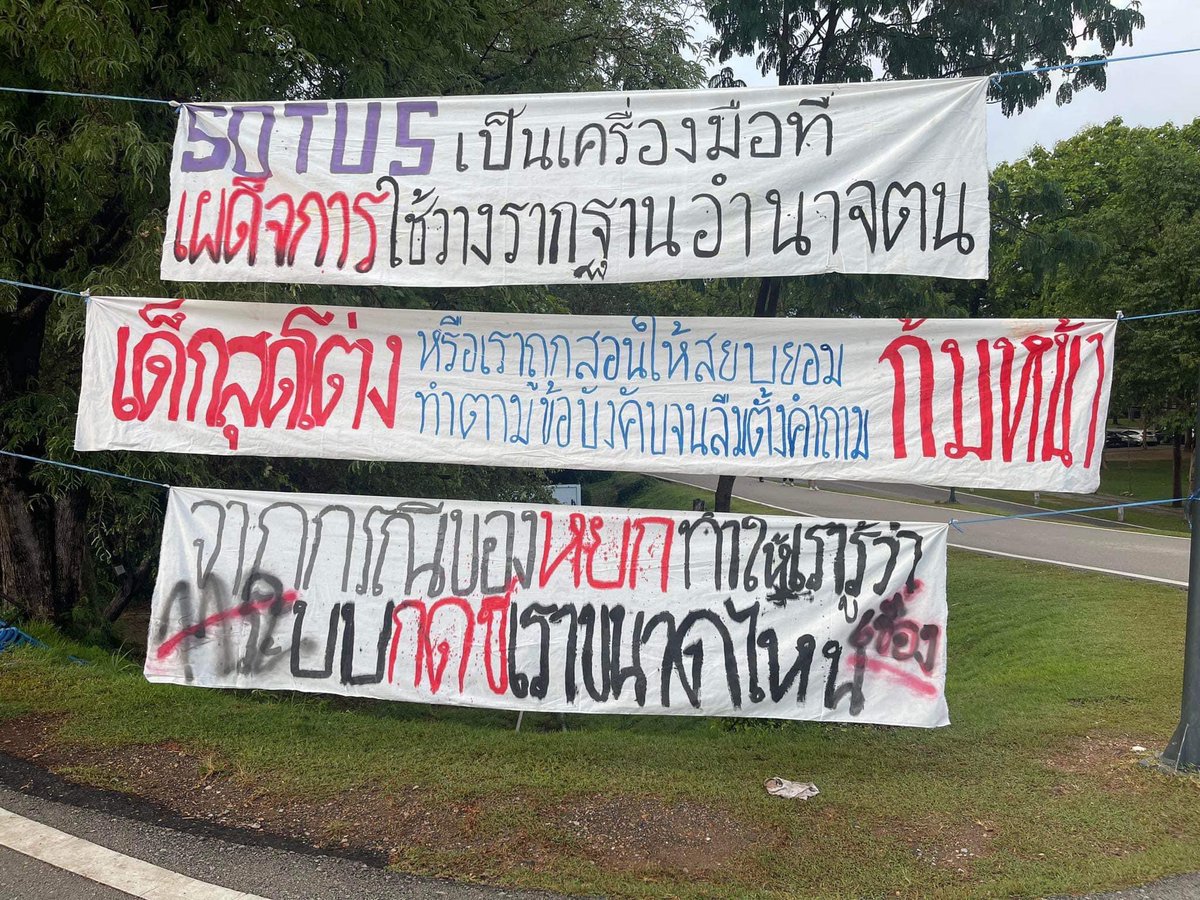 SOTUS เป็นเครื่องมือที่
เผด็จการใช้วางรากฐานอำนาจตน
เด็กสุดโต่ง หรือเราถูกสอนให้สยบยอม ก้มหน้า
ทำตามข้อบังคับจนลืมตั้งคำถาม
จากกรณีของหยกทำให้เรารู้ว่า
ระบบกดขี่เราขนาดไหน
เชื่อง